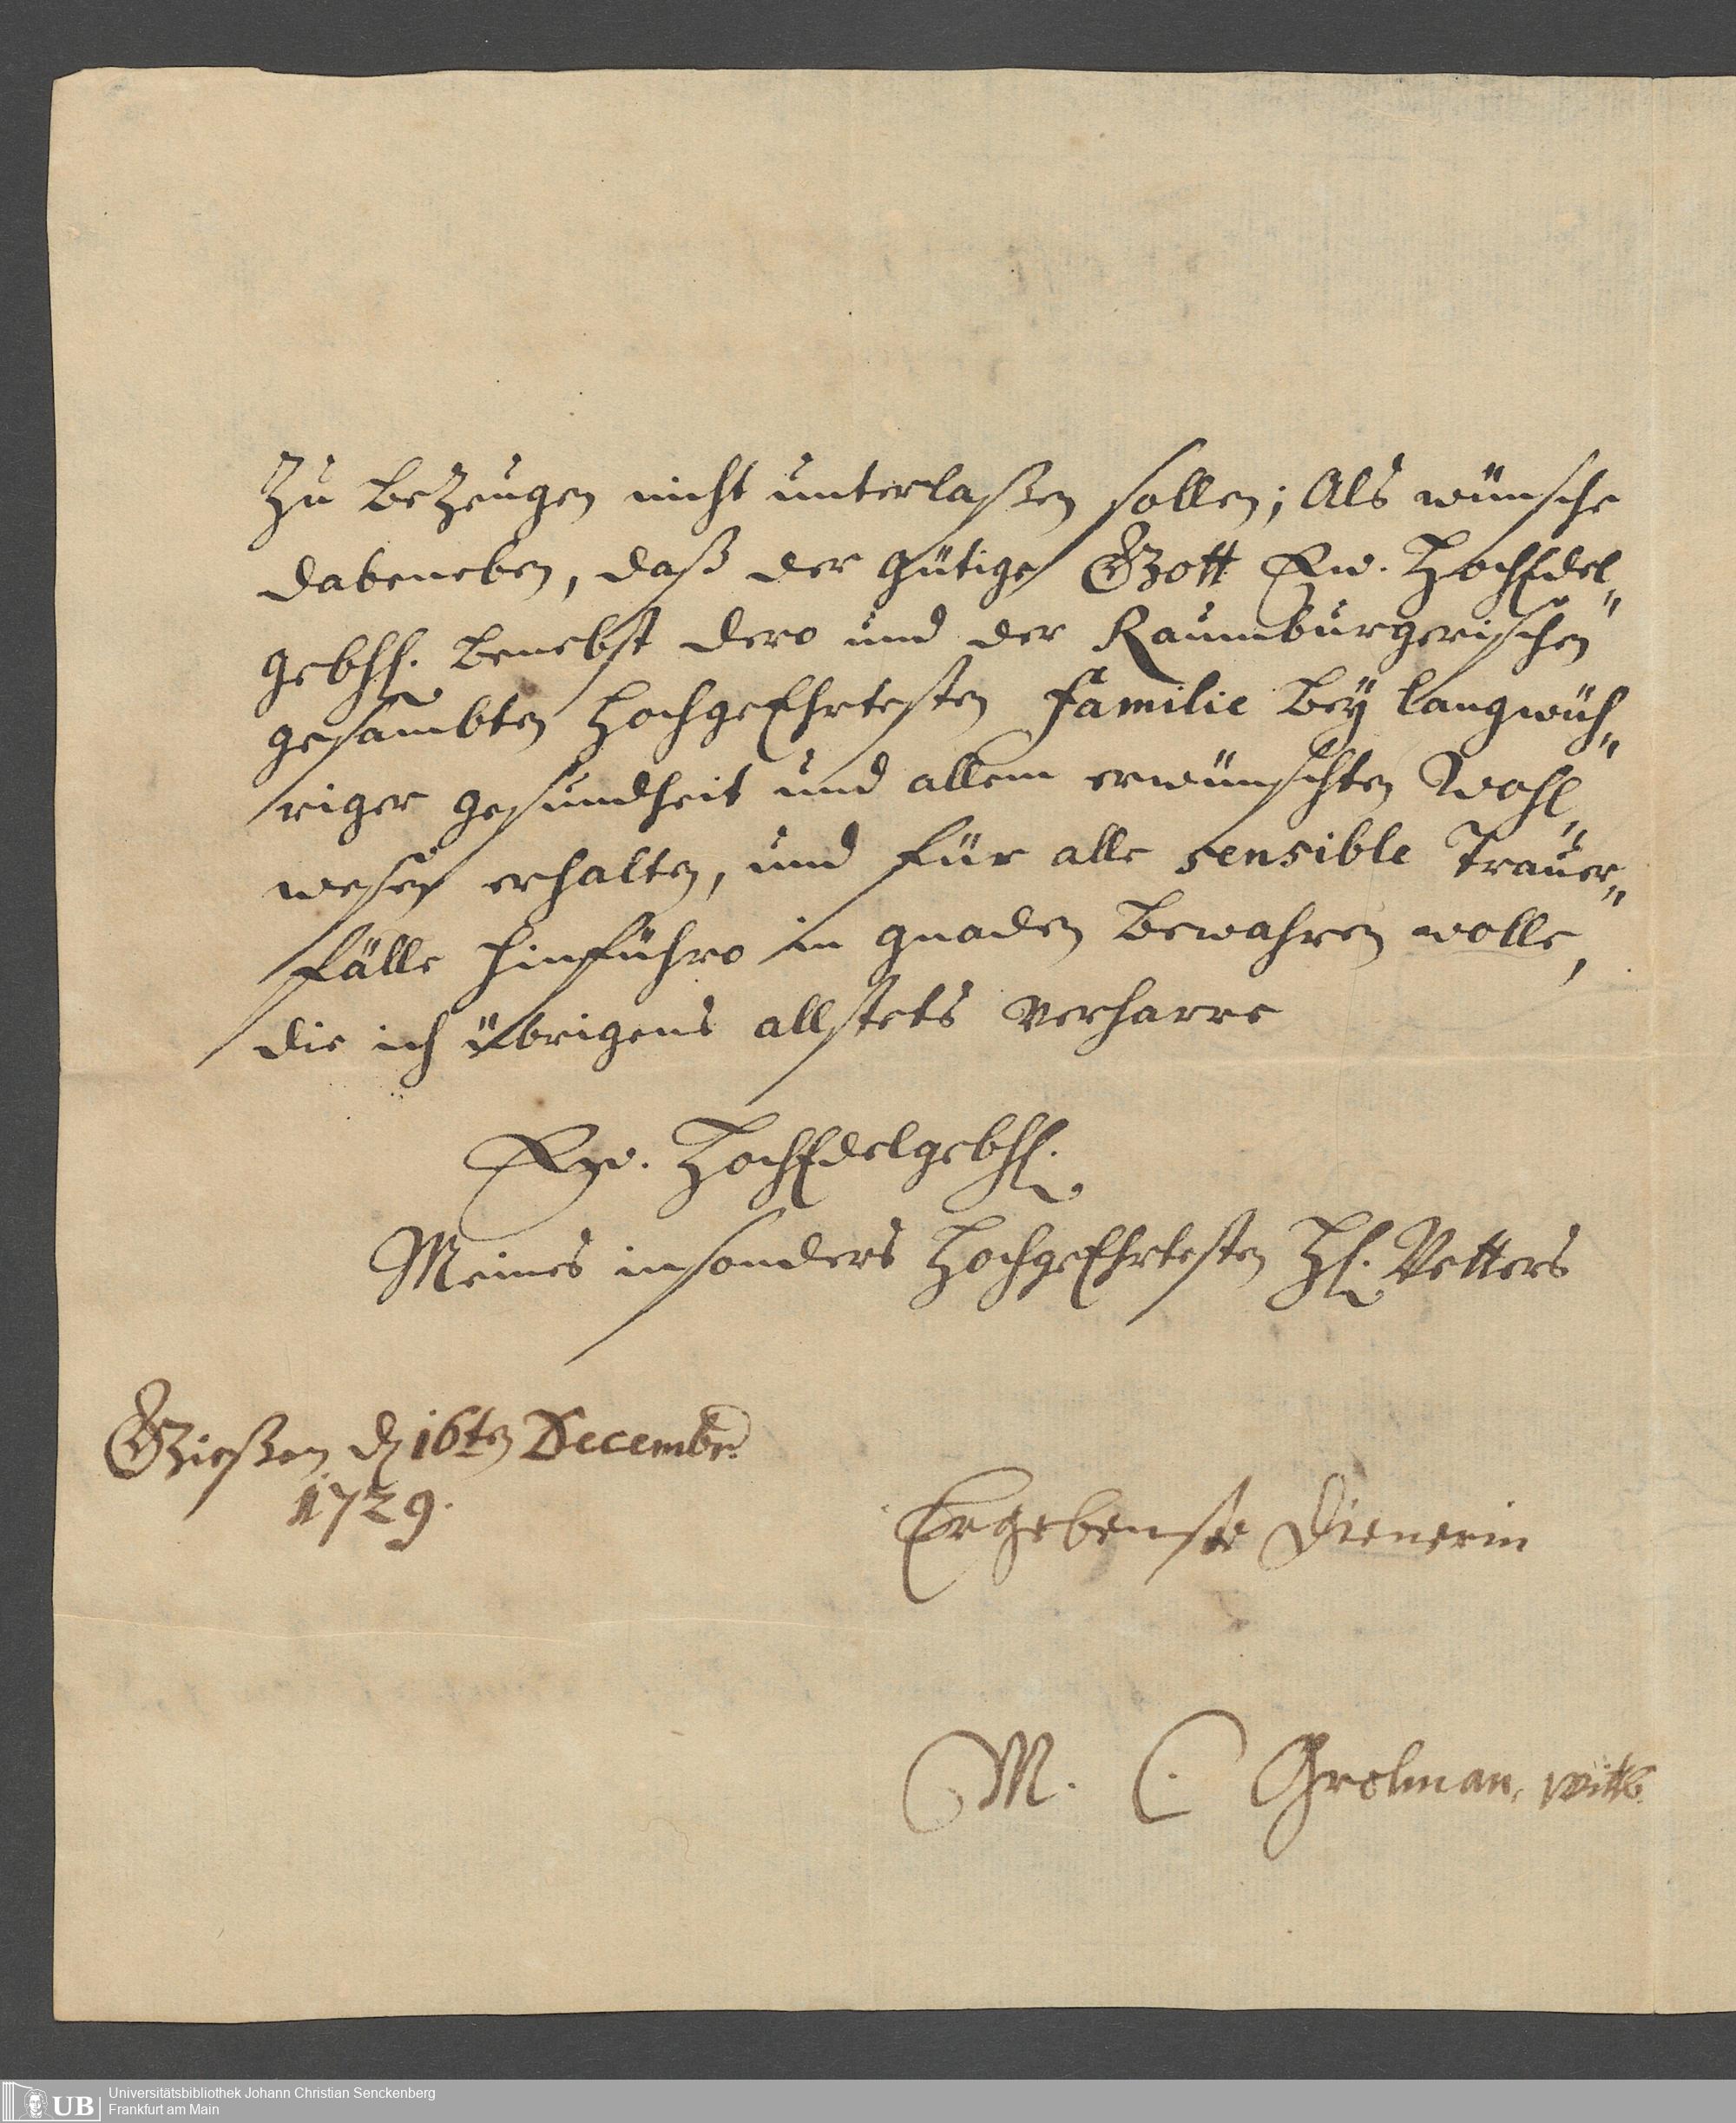 Zu beZeugen nicht unterlaßen sollen; Als wünsche
dabeneben, daß der gütige Gott Ew. HochEdel„
gebhl. benebst dero und der Raumburgerischen
gesambten HochgeEhrtesten Familie bey langwüh„
riger gesundheit und allem erwünschten Wohl„
wesen erhalten, und für alle sensible Trauer„
fälle hinführo in gnaden bewahren wolle,
die ich übrigens allstets verharre
Ew. HochEdelgebhl.
Meines insonders HochgeEhrtesten H. Vetters
Gießen d 16ten Decembr.
1729.
Ergebenste Dienerin
M. C. Grolman, witb.
Universitätsbibliothek Johann Christian Senckenberg
Frankfurt am Main
UB